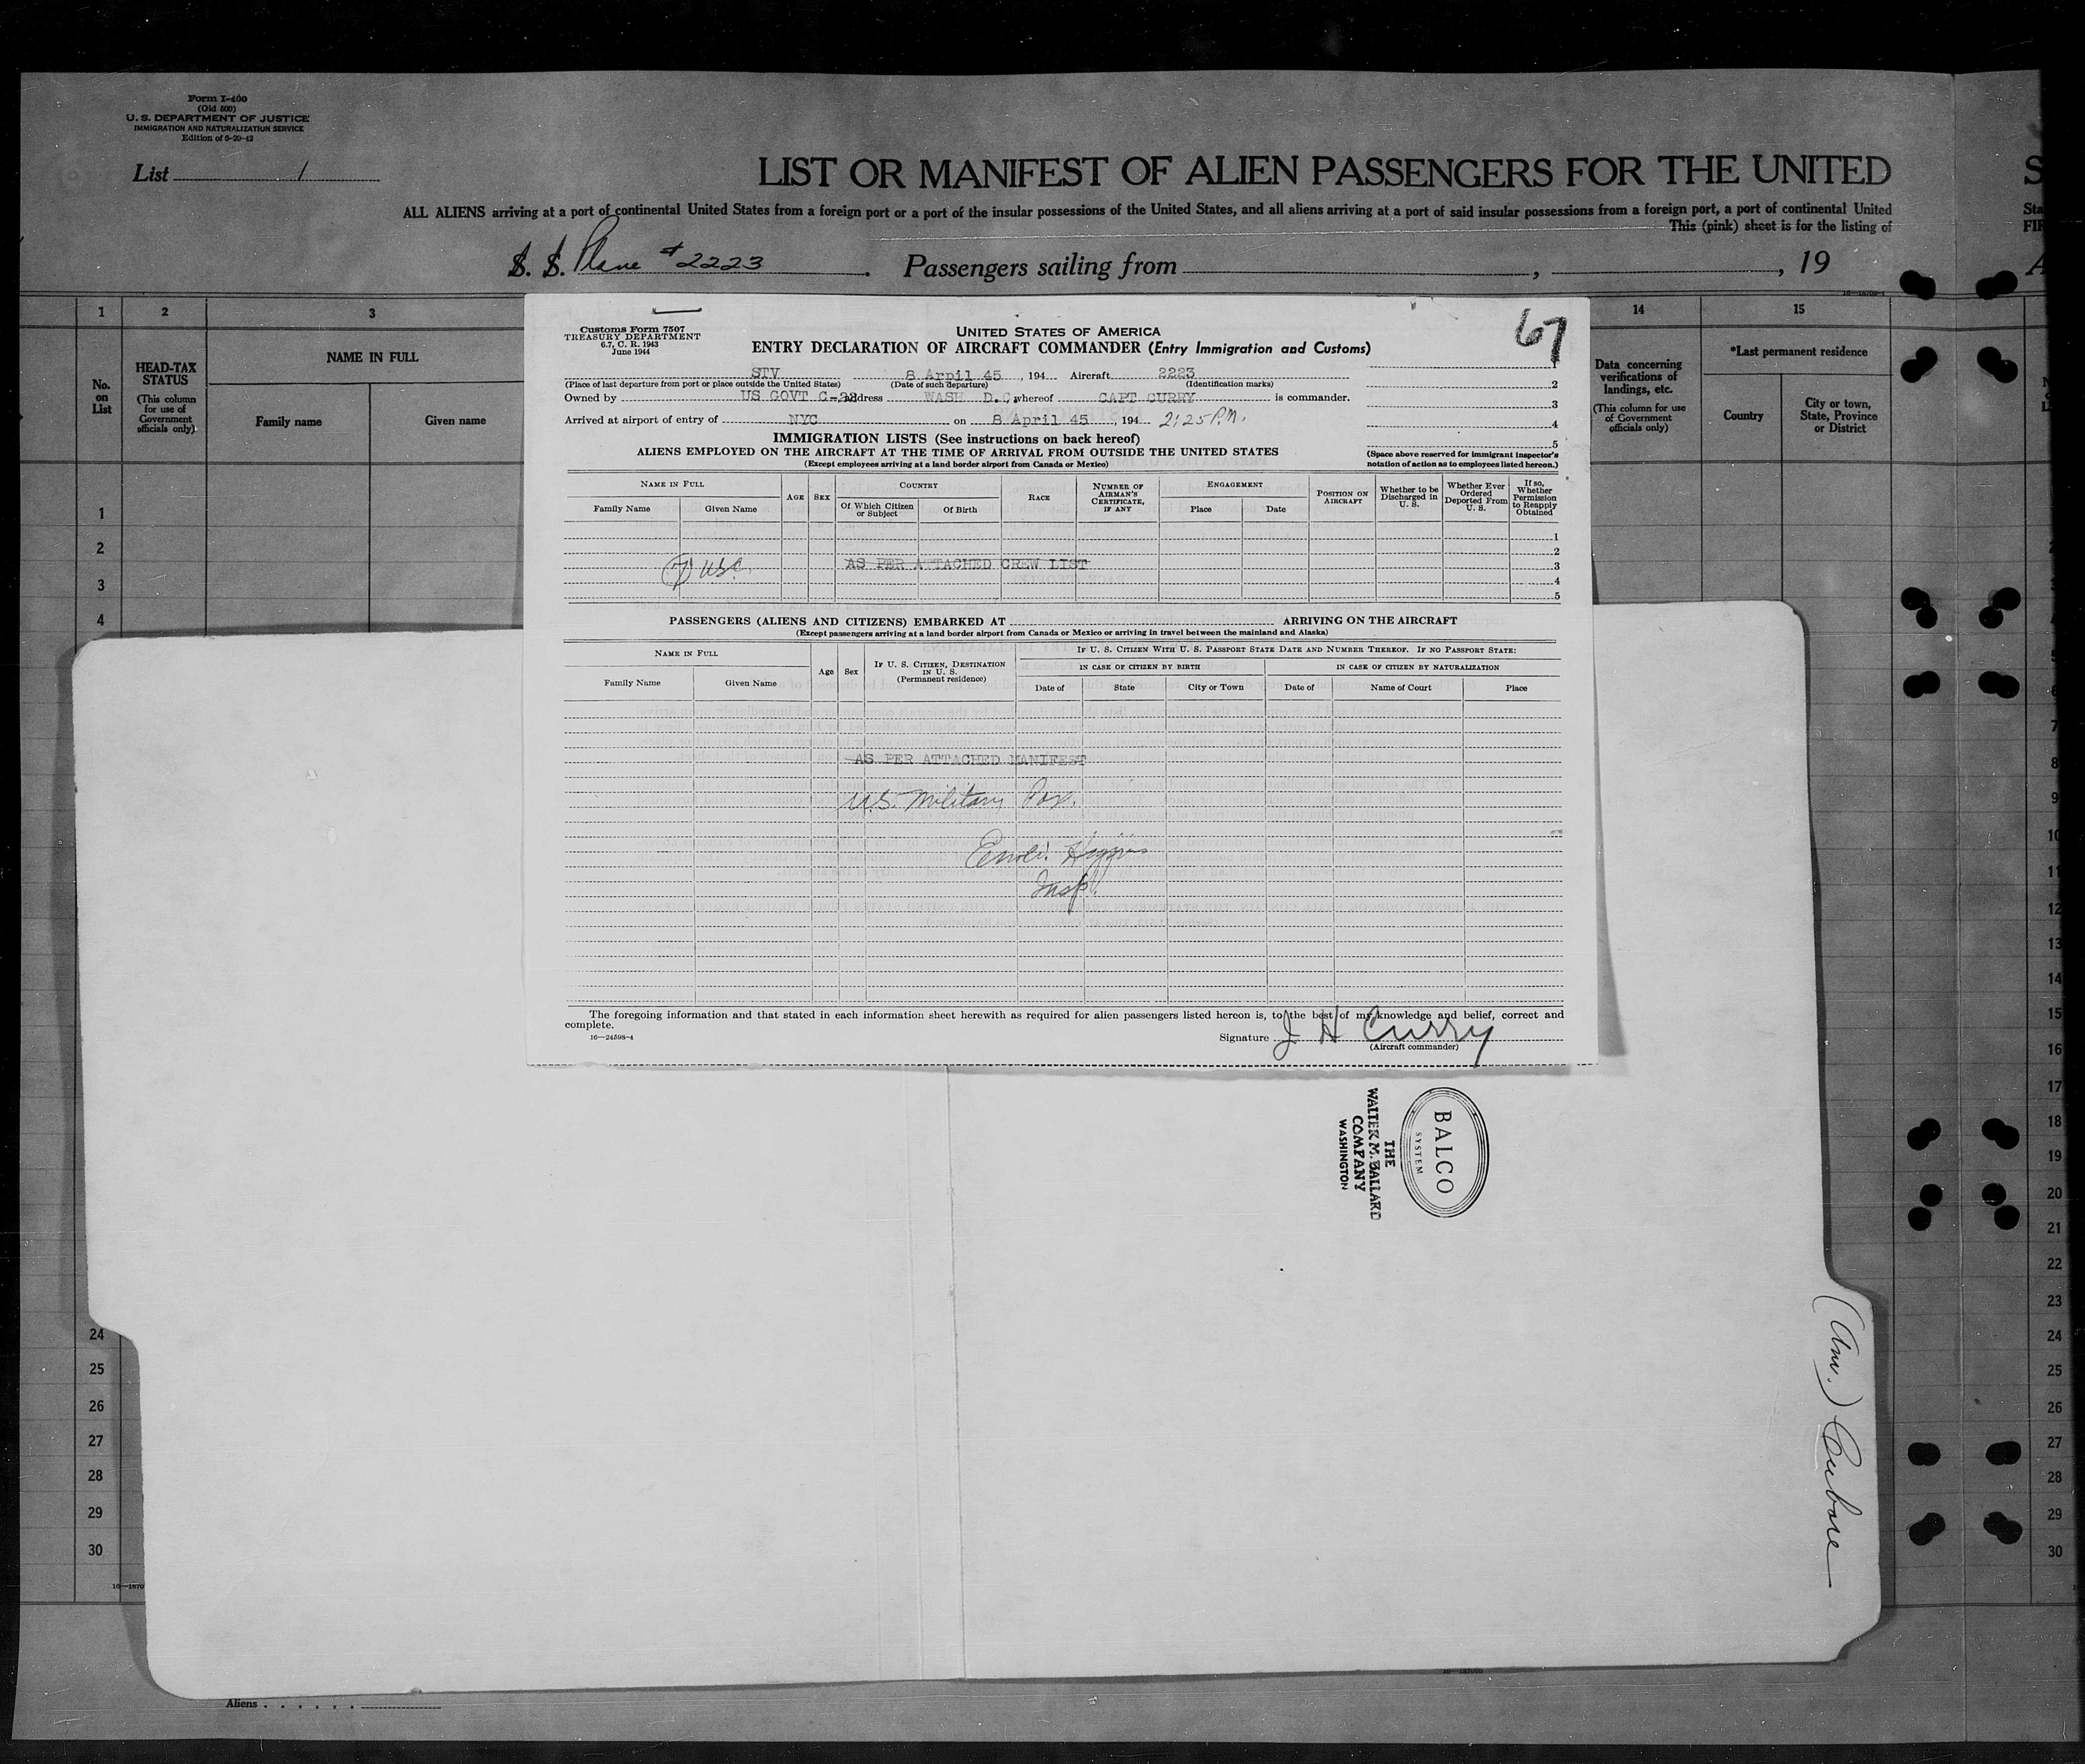 Form I-400
(Old 500)
U. S. DEPARTMENT OF JUSTICE
IMMIGRATION AND NATURALIZATION SERVICE
Edition of 5-20-43
List 1
LIST OR MANIFEST OF ALIEN PASSENGERS FOR THE UNITED
S
ALL ALIENS arriving at a port of continental United States from a foreign port or a port of the insular possessions of the United States, and all aliens arriving at a port of said insular possessions from a foreign port, a port of continental United
Sta
This (pink) sheet is for the listing of
FIR
S. S. Plane #2223. Passengers sailing from , , 19
A
1 2 3 14 15
No. on List
HEAD-TAX STATUS
(This column for use of Government officials only)
NAME IN FULL
Family name Given name
Data concerning verifications of landings, etc.
(This column for use of Government officials only)
*Last permanent residence
Country
City or town, State, Province or District
67
Customs Form 7507
TREASURY DEPARTMENT
6.7, C. R. 1943
June 1944
UNITED STATES OF AMERICA
ENTRY DECLARATION OF AIRCRAFT COMMANDER (Entry Immigration and Customs)
STV 8 April 45, 194 Aircraft 2223
(Place of last departure from port or place outside the United States) (Date of such departure) (Identification marks)
Owned by US GOVT Address WASH D.C, whereof CAPT CURRY is commander.
Arrived at airport of entry of NYC on 8 April 45, 194 2:25 P.M.
1
2
3
4
5
(Space above reserved for immigrant inspector's notation of action as to employees listed hereon.)
IMMIGRATION LISTS (See instructions on back hereof)
ALIENS EMPLOYED ON THE AIRCRAFT AT THE TIME OF ARRIVAL FROM OUTSIDE THE UNITED STATES
(Except employees arriving at a land border airport from Canada or Mexico)
NAME IN FULL
Family Name Given Name
AGE SEX
COUNTRY
Of Which Citizen or Subject Of Birth
RACE
NUMBER OF AIRMAN'S CERTIFICATE, IF ANY
ENGAGEMENT
Place Date
POSITION ON AIRCRAFT
Whether to be Discharged in U. S.
Whether Ever Ordered Deported From U. S.
If so, Whether Permission to Reapply Obtained
1
2
7 USC. AS PER ATTACHED CREW LIST 3
4
5
PASSENGERS (ALIENS AND CITIZENS) EMBARKED AT ARRIVING ON THE AIRCRAFT
(Except passengers arriving at a land border airport from Canada or Mexico or arriving in travel between the mainland and Alaska)
NAME IN FULL
Family Name Given Name
Age Sex
IF U. S. CITIZEN, DESTINATION IN U. S.
(Permanent residence)
IF U. S. CITIZEN WITH U. S. PASSPORT STATE DATE AND NUMBER THEREOF. IF NO PASSPORT STATE:
IN CASE OF CITIZEN BY BIRTH IN CASE OF CITIZEN BY NATURALIZATION
Date of State City or Town Date of Name of Court Place
AS PER ATTACHED MANIFEST
U.S. Military Pax.
Higgins
Insp.
The foregoing information and that stated in each information sheet herewith as required for alien passengers listed hereon is, to the best of my knowledge and belief, correct and
complete.
16—24598-4
Signature J H Curry
(Aircraft commander)
BALCO
SYSTEM
THE
WALTER M. BALLARD
COMPANY
WASHINGTON
1
2
3
4
7
8
9
10
11
12
13
14
15
16
17
18
19
20
21
22
23
24 24
25 25
26 26
27 27
28 28
29 29
30 30
16—1870
Aliens